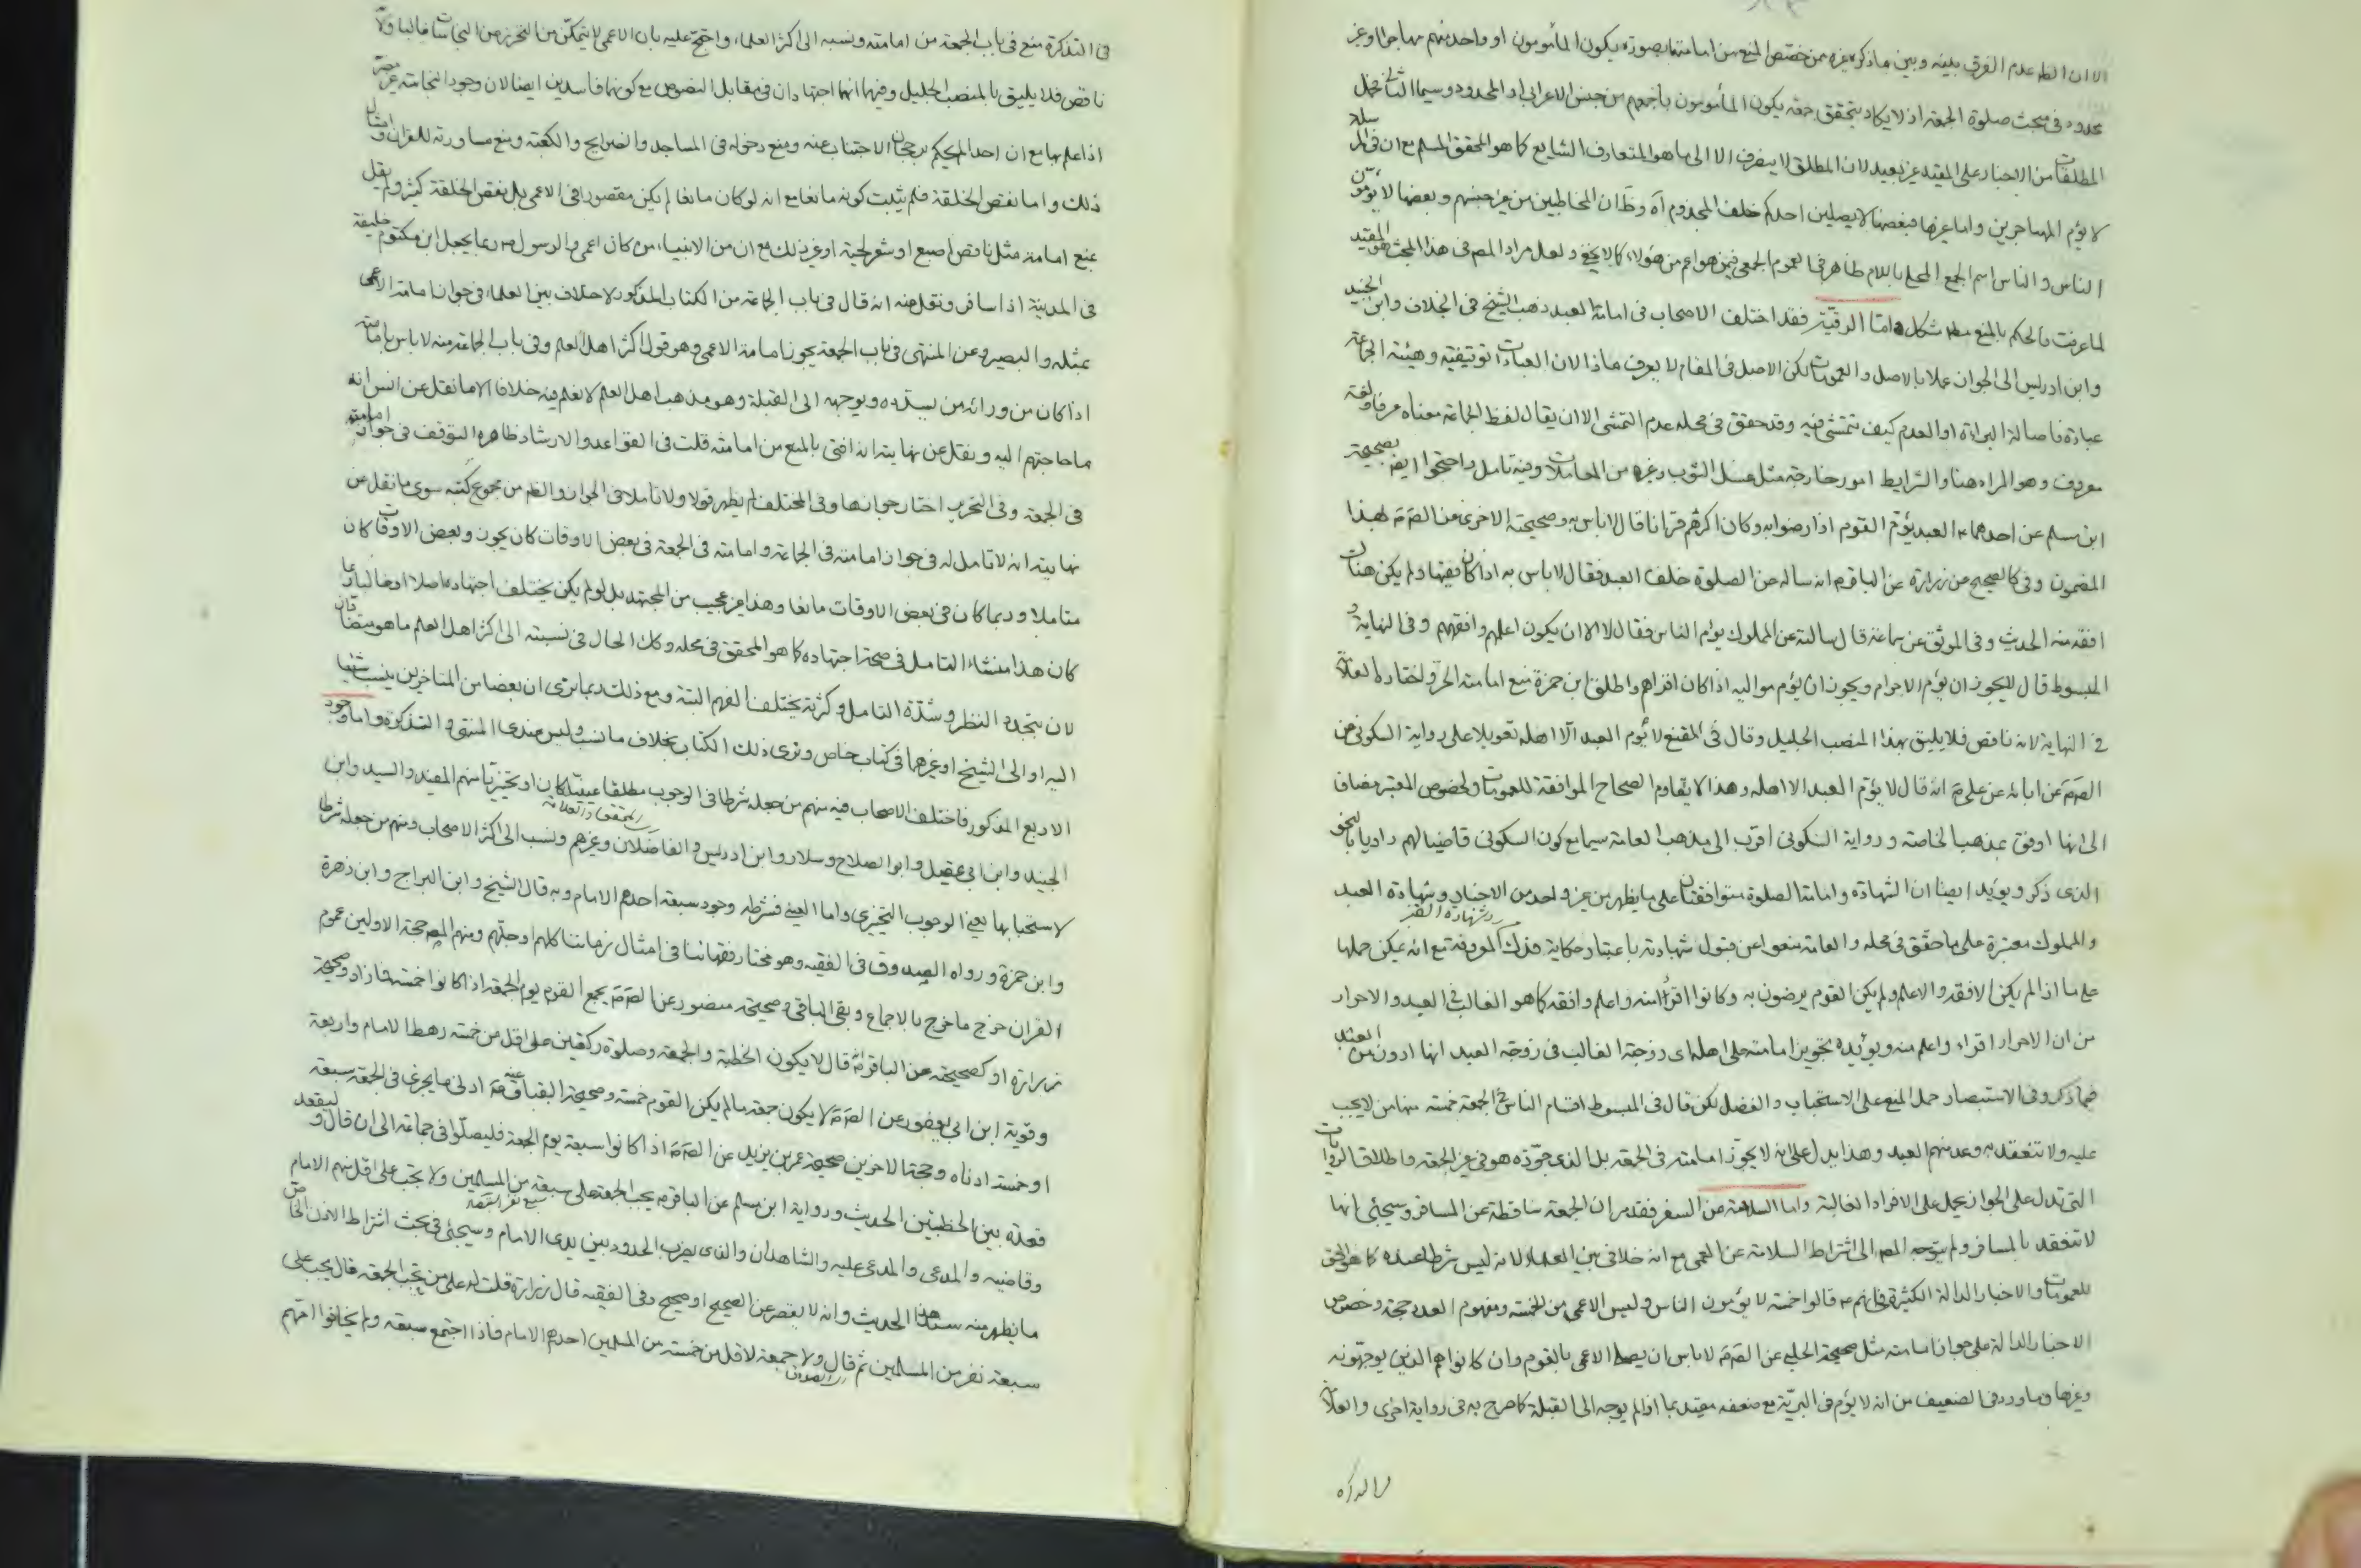 الا ان الظ عدم الفرق بينه وبين ما ذكره غيره ممن خصص المنع من امامتها بصورة يكون المأمومون او واحد منهم مهاجرا وغير
محدود في مبحث صلوة الجمعة اذ لا يكاد يتحقق جمعة يكون المأمومون باجمعهم من جنس الاعرابي او المحدود وسيما الثاني فحمل
المطلقات من الاخبار على المقيد غير بعيد لان المطلق لا ينصرف الا الى ما هو المتعارف الشايع كما هو المحقق المسلم مع ان في المرسلة
لا يؤم المهاجرين واما غيرها فبعضها لا يصلين احدكم خلف المجذوم آه وظ ان المخاطبين من غير جنسهم وبعضها لا يؤمون
الناس والناس اسم الجمع المحلى باللام ظاهر في العموم الجمعي فيمن هو اعم من هؤلاء كما لا يخفى ولعل مراد المص في هذا المبحث هو المقيد
لما عرفت فالحكم بالمنع مط مشكل واما الرقية فقد اختلف الاصحاب في امامة العبد ذهب الشيخ في الخلاف وابن الجنيد
وابن ادريس الى الجواز عملا بالاصل والعمومات لكن الاصل في المقام لا يعرف ماذا لان العبادات توقيفية وهيئة الجماعة
عبادة فاصالة البراءة او العدم كيف تتمشى فيه وقد حقق في محله عدم التمشى الا ان يقال لفظ الجماعة معناه عرفا ولغة
معروف وهو المراد هنا والشرايط امور خارجة مثل غسل الثوب وغيره من المعاملات وفيه تامل واحتجوا ايض بصحيحة
ابن مسلم عن احدهما ع العبد يؤم القوم اذا رضوا به وكان اكثرهم قرانا قال لا باس به وصحيحته الاخرى عن الص ع بهذا
المضمون وفي كالصحيح من زرارة عن الباقر ع انه ساله عن الصلوة خلف العبد فقال لا باس به اذا كان فقيها ولم يكن هناك
افقه منه الحديث وفي الموثق عن سماعة قال سالته عن المملوك يؤم الناس فقال لا الا ان يكون اعلمهم وافقههم وفي النهاية و
المبسوط قال لا يجوز ان يؤم الاحرار ويجوز ان يؤم مواليه اذا كان اقراهم واطلق ابن حمزة منع امامته الحر واختاره العلامة
في النهاية لانه ناقص فلا يليق بهذا المنصب الجليل وقال في المقنع لا يؤم العبد الا اهله تعويلا على رواية السكوني عن
الص ع عن ابائه عن علي ع انه قال لا يؤم العبد الا اهله وهذا لا يقاوم الصحاح الموافقة للعمومات ولخصوص المعتبر مضافا
الى انها اوفق بمذهب الخاصة ورواية السكوني اقرب الى مذهب العامة سيما مع كون السكوني قاضيا لهم راويا بالنحو
الذي ذكر ويؤيد ايضا ان الشهادة وامامة الصلوة متوافقتان على ما يظهر من غير واحد من الاخبار وشهادة العبد
والمملوك معتبرة على ما حقق في محله والعامة منعوا عن قبول شهادته باعتبار حكاية فدك المعروفة مع انه يمكن حملها
على ما اذا لم يكن الافقه والاعلم ولم يكن القوم يرضون به وكانوا اقرأ منه واعلم وافقه كما هو الغالب في العبد والاحرار
من ان الاحرار اقراء واعلم منه ويؤيده تجويز امامته على اهله اي زوجته الغالب في زوجة العبد انها ادون من العبد
فما ذكر وفي الاستبصار حمل المنع على الاستحباب والفضل لكن قال في المبسوط اقسام الناس في الجمعة خمسة منها من لا يجب
عليه ولا تنعقد به وعد منهم العبد وهذا يدل على انه لا يجوز امامته في الجمعة بل الذي جوزه هو في غير الجمعة واطلاق الروايات
التي تدل على الجواز يحمل على الافراد الغالبة واما السلامة من السفر فقد مر ان الجمعة ساقطة عن المسافر وسيجئي انها
لا تنعقد بالمسافر ولم يتوجه المص الى اشتراط السلامة عن العمى مع انه خلافي بين العلماء لانه ليس شرطا عنده كما هو الحق
للعمومات والاخبار الدالة الكثيرة فانهم ع قالوا خمسة لا يؤمون الناس وليس الاعمى من الخمسة ومفهوم العدد حجة وخصوص
الاخبار الدالة على جواز امامته مثل صحيحة الحلبي عن الص ع لا باس ان يصلى الاعمى بالقوم وان كانوا هم الذين يوجهونه
وغيرها وما ورد في الضعيف من انه لا يؤم في البرية مع ضعفه مقيد بما اذا لم يوجه الى القبلة كما صرح به في رواية اخرى والعلامة
في التذكرة منع في باب الجمعة من امامته ونسبه الى اكثر العلماء واحتج عليه بان الاعمى لا يتمكن من التحرز من النجاسات غالبا ولانه
ناقص فلا يليق بالمنصب الجليل وفيهما انهما اجتهادان في مقابل النصوص مع كونهما فاسدين ايضا لان وجود النجاسة غير مضر
اذا علم بها مع ان احدا لم يحكم برجحان الاجتناب عنه ومنع دخوله في المساجد والضرايح والكعبة ومنع مساورته للقران وامثال
ذلك واما نقص الخلقة فلم يثبت كونه مانعا مع انه لو كان مانعا لم يكن مقصورا في الاعمى بل نقص الخلقة كثير ولم يقل
بمنع امامته مثل ناقص اصبع او شعر لحية او غير ذلك مع ان من الانبياء من كان اعمى والرسول ص ربما يجعل ابن مكتوم خليفة
في المدينة اذا سافر ونقل عنه انه قال في باب الجماعة من الكتاب المذكور لا خلاف بين العلماء في جواز امامة الاعمى
بمثله والبصير وعن المنتهى في باب الجمعة يجوز امامة الاعمى وهو قول اكثر اهل العلم وفي باب الجماعة منه لا باس بامامته
اذا كان من ورائه من يسدده ويوجهه الى القبلة وهو مذهب اهل العلم لا نعلم فيه خلافا الا ما نقل عن انس انه
ما حاجتهم اليه ونقل عن نهايته انه افتى بالمنع من امامته قلت في القواعد والارشاد ظاهره التوقف في جواز امامته
في الجمعة وفي التحرير اختار جوازها وفي المختلف لم يظهر قولا ولا تاملا في الجواز والظ من مجموع كتبه سوى ما نقل عن
نهايته انه لا تامل له في جواز امامته في الجماعة وامامته في الجمعة في بعض الاوقات كان يجوز وبعض الاوقات كان
متاملا وربما كان في بعض الاوقات مانعا وهذا غير عجيب من المجتهد بل لو لم يكن يختلف اجتهاده اصلا او غالبا ربما
كان هذا منشاء التامل في صحة اجتهاده كما هو المحقق في محله وكك الحال في نسبته الى اكثر اهل العلم ما هو متضادان
لان بتجدد النظر وشدة التامل وكثرته يختلف الفهم البتة ومع ذلك ربما نرى ان بعضا من المتاخرين ينسب شيئا
اليه او الى الشيخ او غيرهما في كتاب خاص ونرى ذلك الكتاب بخلاف ما نسب وليس عندى المنتهى والتذكرة واما وجود
الاربع المذكور فاختلف الاصحاب فيه منهم من جعله شرطا في الوجوب مطلقا عينيا كان او تخييريا منهم المفيد والسيد وابن
الجنيد وابن ابي عقيل وابو الصلاح وسلار وابن ادريس والفاضلان وغيرهم ونسب الى اكثر الاصحاب ومنهم من جعله شرطا
لاستحبابها يعني الوجوب التخييري واما العيني فشرطه وجود سبعة احدهم الامام وبه قال الشيخ وابن البراج وابن زهرة
وابن حمزة ورواه الصدوق في الفقيه وهو مختار فقهائنا في امثال زماننا كلهم او جلهم ومنهم المص حجة الاولين عموم
القران خرج ما خرج بالاجماع وبقي الباقي وصحيحة منصور عن الص ع يجمع القوم يوم الجمعة اذا كانوا خمسة فما زاد وصحيحة
زرارة او كصحيحته عن الباقر ع قال لا يكون الخطبة والجمعة وصلوة ركعتين على اقل من خمسة رهط الامام واربعة
وقوية ابن ابي يعفور عن الص ع لا يكون جمعة ما لم يكن القوم خمسة وصحيحة البقباق عنه ع ادنى ما يجزى في الجمعة سبعة
او خمسة ادناه وحجة الاخرين صحيحة عمر بن يزيد عن الص ع اذا كانوا سبعة يوم الجمعة فليصلوا في جماعة الى ان قال وليقعد
قعدة بين الخطبتين الحديث ورواية ابن مسلم عن الباقر ع يجب الجمعة على سبعة من المسلمين ولا يجب على اقل منهم الامام
وقاضيه والمدعى والمدعى عليه والشاهدان والذي يضرب الحدود بين يدى الامام وسيجئ في مبحث اشتراط الاذن الخاص
ما يظهر منه سند هذا الحديث وانه لا يقصر عن الصحيح او صحيح وفي الفقيه قال زرارة قلت له على من تجب الجمعة قال يجب على
سبعة نفر من المسلمين ثم قال ولا جمعة لاقل من خمسة من المسلمين احدهم الامام فاذا اجتمع سبعة ولم يخافوا امهم